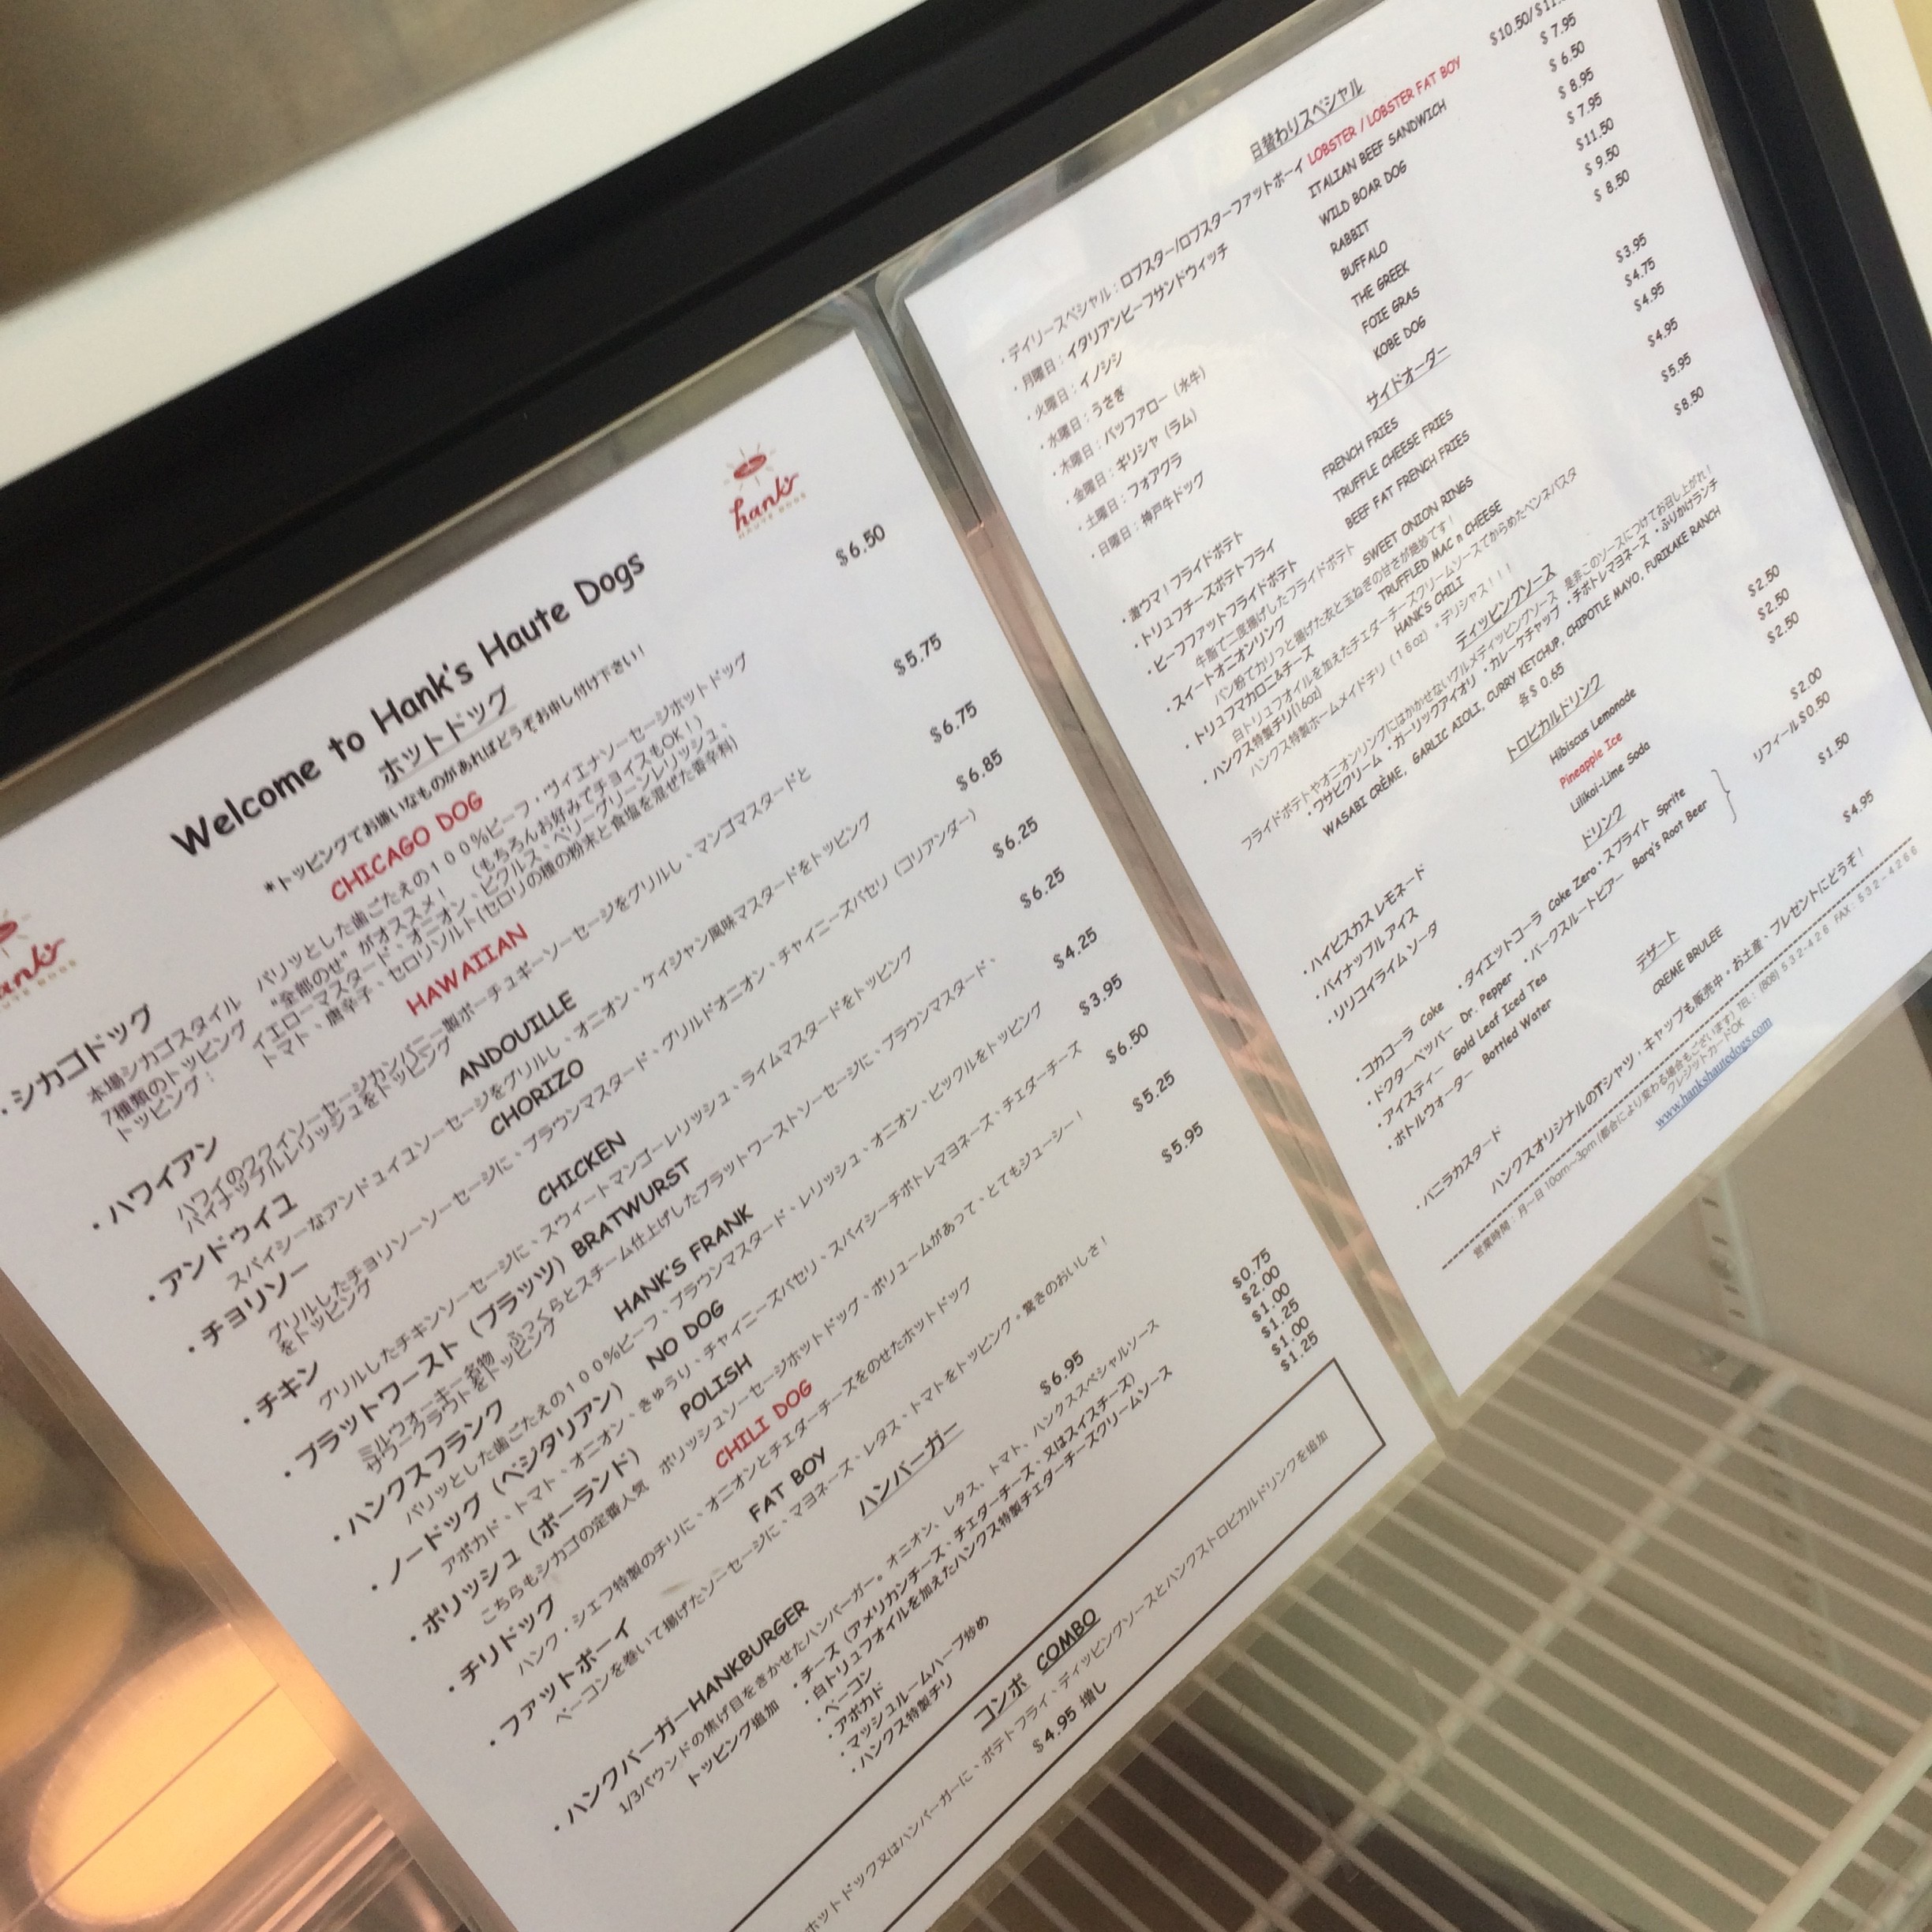 hank's
HAUTE DOGS
Welcome to Hank's Haute Dogs
ホットドッグ
*トッピングでお嫌いなものがあればどうぞお申し付け下さい!
・シカゴドッグ CHICAGO DOG $6.50
本場シカゴスタイル パリッとした歯ごたえの100%ビーフ・ヴィエナソーセージホットドッグ
7種類のトッピング "全部のせ" がオススメ! (もちろんお好みでチョイスもOK!)
トッピング: イエローマスタード、オニオン、ピクルス、ベリーグリーンレリッシュ、
トマト、唐辛子、セロリソルト(セロリの種の粉末と食塩を混ぜた香辛料)
・ハワイアン HAWAIIAN $5.75
ハワイのワワイソーセージカンパニー製ポーチュギーソーセージをグリルし、マンゴマスタードと
パイナップルレリッシュをトッピング
・アンドゥイユ ANDOUILLE $6.75
スパイシーなアンドュイユソーセージをグリルし、オニオン、ケイジャン風味マスタードをトッピング
・チョリソー CHORIZO $6.85
グリルしたチョリソーソーセージに、ブラウンマスタード、グリルドオニオン、チャイニーズパセリ (コリアンダー)
をトッピング
・チキン CHICKEN $6.25
グリルしたチキンソーセージに、スウィートマンゴーレリッシュ、ライムマスタードをトッピング
・ブラットワースト (ブラッツ) BRATWURST $6.25
ミルウォーキー名物 ふっくらとスチーム仕上げしたブラットワーストソーセージに、ブラウンマスタード、
サワークラウトをトッピング
・ハンクスフランク HANK'S FRANK $4.25
パリッとした歯ごたえの100%ビーフ、ブラウンマスタード、レリッシュ、オニオン、ピックルをトッピング
・ノードッグ (ベジタリアン) NO DOG $3.95
アボカド、トマト、オニオン、きゅうり、チャイニーズパセリ、スパイシーチポトレマヨネーズ、チェダーチーズ
・ポリッシュ (ポーランド) POLISH $6.50
こちらもシカゴの定番人気 ポリッシュソーセージホットドッグ、ボリュームがあって、とてもジューシー!
・チリドッグ CHILI DOG $5.25
ハンク・シェフ特製のチリに、オニオンとチェダーチーズをのせたホットドッグ
・ファットボーイ FAT BOY $5.95
ベーコンを巻いて揚げたソーセージに、マヨネーズ、レタス、トマトをトッピング。驚きのおいしさ!
ハンバーガー
・ハンクバーガーHANKBURGER $6.95
1/3パウンドの焦げ目をきかせたハンバーガー。オニオン、レタス、トマト、ハンクススペシャルソース
トッピング追加 ・チーズ (アメリカンチーズ、チェダーチーズ、又はスイスチーズ) $0.75
・白トリュフオイルを加えたハンクス特製チェダーチーズクリームソース $2.00
・ベーコン $1.00
・アボカド $1.25
・マッシュルームハーブ炒め $1.00
・ハンクス特製チリ $1.25
コンボ COMBO
ホットドッグ又はハンバーガーに、ポテトフライ、ディッピングソースとハンクストロピカルドリンクを追加
$4.95 増し
日替わりスペシャル
・デイリースペシャル:ロブスター/ロブスターファットボーイ LOBSTER / LOBSTER FAT BOY
・月曜日:イタリアンビーフサンドウィッチ ITALIAN BEEF SANDWICH $ 7.95
・火曜日:イノシシ WILD BOAR DOG $ 6.50
・水曜日:うさぎ RABBIT $ 8.95
・木曜日:バッファロー (水牛) BUFFALO $ 7.95
・金曜日:ギリシャ (ラム) THE GREEK $11.50
・土曜日:フォアグラ FOIE GRAS $ 9.50
・日曜日:神戸牛ドッグ KOBE DOG $ 8.50
サイドオーダー
・激ウマ!フライドポテト FRENCH FRIES $3.95
・トリュフチーズポテトフライ TRUFFLE CHEESE FRIES $4.75
・ビーフファットフライドポテト BEEF FAT FRENCH FRIES $4.95
牛脂で二度揚げしたフライドポテト
・スイートオニオンリング SWEET ONION RINGS $4.95
パン粉でカリっと揚げた衣と玉ねぎの甘さが絶妙です!
・トリュフマカロニ&チーズ TRUFFLED MAC n CHEESE $5.95
白トリュフオイルを加えたチェダーチーズクリームソースでからめたペンネパスタ
・ハンクス特製チリ(16oz) HANK'S CHILI $8.50
ハンクス特製ホームメイドチリ (16oz) 。デリシャス!!!
ディッピングソース
フライドポテトやオニオンリングにはかかせないグルメディッピングソース 是非このソースにつけてお召し上がれ!
・ワサビクリーム ・ガーリックアイオリ ・カレーケチャップ ・チポトレマヨネーズ ・ふりかけランチ
WASABI CRÈME, GARLIC AIOLI, CURRY KETCHUP, CHIPOTLE MAYO, FURIKAKE RANCH
各$ 0.65
トロピカルドリンク
・ハイビスカス レモネード Hibiscus Lemonade $2.50
・パイナップル アイス Pineapple Ice $2.50
・リリコイライム ソーダ Lilikoi-Lime Soda $2.50
ドリンク
・コカコーラ Coke ・ダイエットコーラ Coke Zero・スプライト Sprite $2.00
・ドクターペッパー Dr. Pepper ・バークスルートビアー Barq's Root Beer リフィール$0.50
・アイスティー Gold Leaf Iced Tea
・ボトルウォーター Bottled Water $1.50
デザート
・バニラカスタード CREME BRULEE $4.95
ハンクスオリジナルのTシャツ・キャップも販売中。お土産、プレゼントにどうぞ!
営業時間:月~日 10am~3pm (都合により変わる場合もございます) TEL: (808) 532-426 FAX: 532-4266
クレジットカードOK
www.hankshautedogs.com